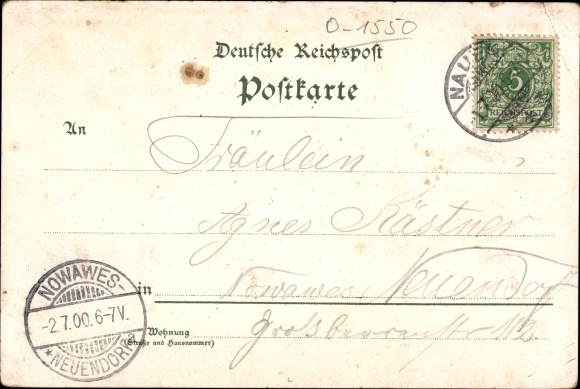 O-1550
Deutsche Reichspost
Postkarte
NAUEN
5
REICHSPOST
An
Fräulein
Agnes Kästner
in Nowawes-Neuendorf
Wohnung
(Straße und Hausnummer)
Großbeerenstr 113.
NOWAWES-
-2.7.00.6-7V.
*NEUENDORF*